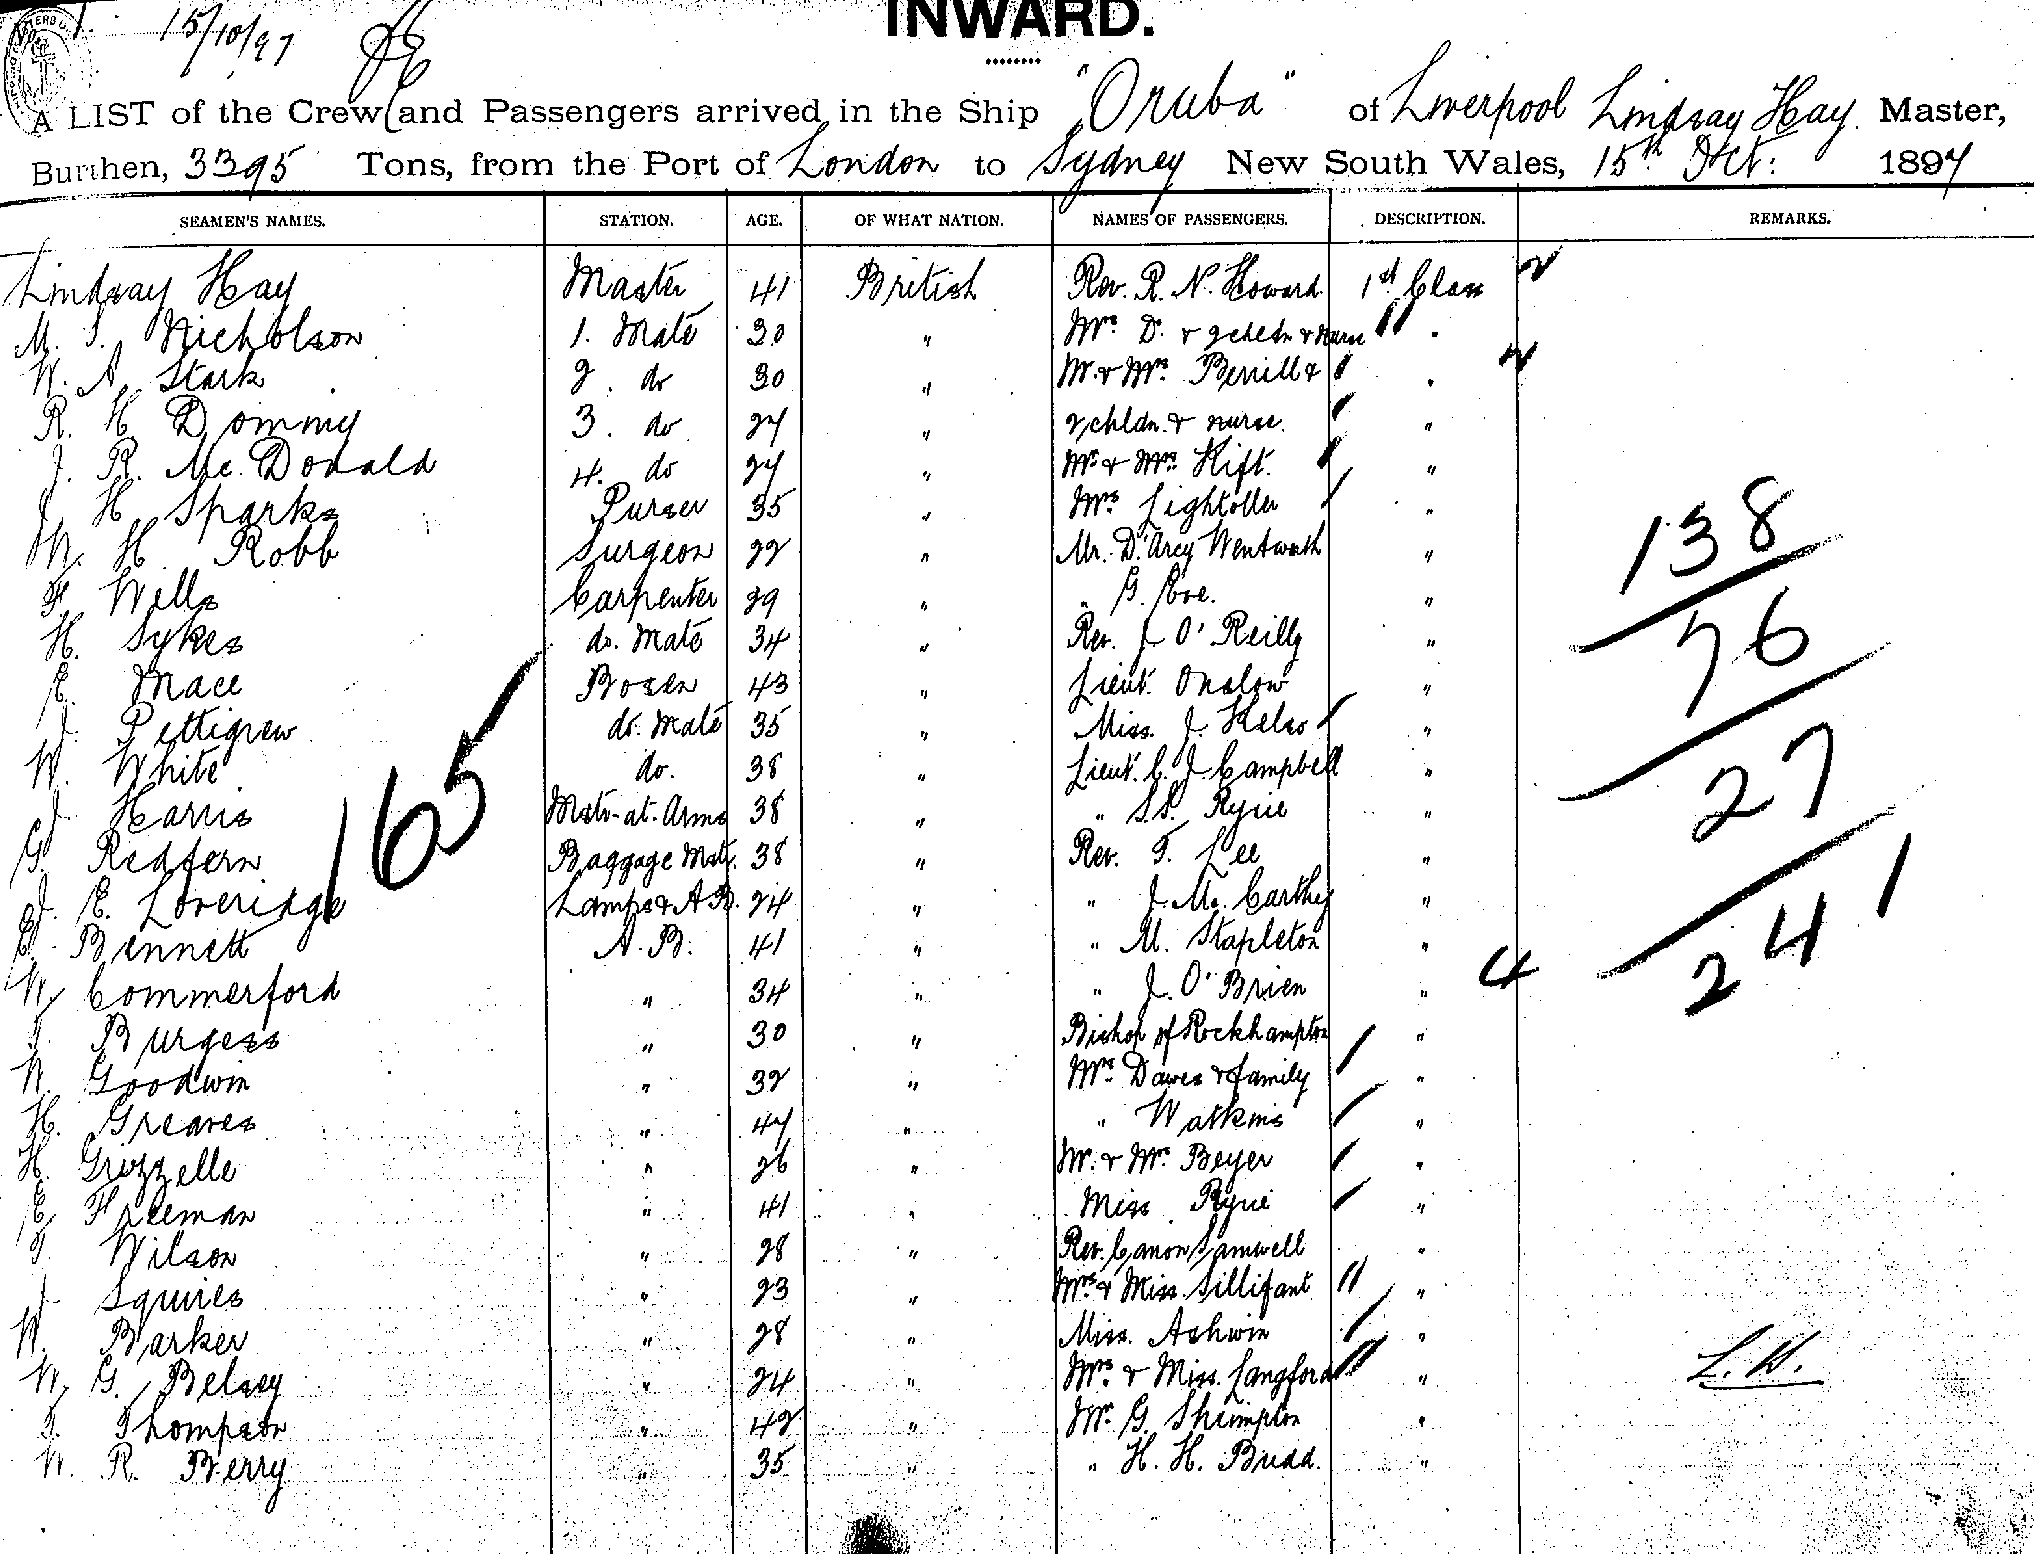 15/10/97
INWARD.
A LIST of the Crew and Passengers arrived in the Ship "Oruba" of Liverpool Lindsay Hay Master,
Burthen, 3395 Tons, from the Port of London to Sydney New South Wales, 15th Oct: 1897
SEAMEN'S NAMES. STATION. AGE. OF WHAT NATION. NAMES OF PASSENGERS. DESCRIPTION. REMARKS.
Lindsay Hay Master 41 British Rev. R. N. Howard 1st Class 2
M. S. Nicholson 1. Mate 30 " Mrs. D. & 2 chldn & nurse "
W. A. Stark 2. do 30 " Mr. & Mrs. Berrill & "
R. H Dommy 3. do 27 " 2 chldn. & nurse. "
J. R. Mc.Donald 4. do 27 " Mr. & Mrs. Kift. "
J H Sparks Purser 35 " Mrs Lightoller "
M. H. Robb Surgeon 22 " Mr. D'Arcy Wentworth "
F. Wells Carpenter 29 " " G. Coe. "
H. Sykes do. Mate 34 " Rev. J O'Reilly "
E. Mace Bosen 43 " Lieut. Onslow "
J. Pettigrew do. Mate 35 " Miss. J. Kelso "
W. White do. 38 " Lieut. C. J. Campbell "
J. Harris Mstr-at-Arms 38 " " S.S. Ryrie "
G. Redfern Baggage Mstr. 38 " Rev. T. Lee "
J. E. Loveridge Lamps & A.B. 24 " " J. Mc.Carthy "
C. Bennett A.B. 41 " " M. Stapleton "
W. Commerford " 34 " " J. O'Brien " 4
T. Burgess " 30 " Bishop of Rockhampton "
W. Goodwin " 32 " Mrs. Dawes & family "
H. Greaves " 47 " " Watkins "
H. Grizzelle " 26 " Mr. & Mrs. Beyer "
E. Freeman " 41 " Miss Ryrie "
T. Wilson " 28 " Rev. Canon Samwell "
J. Squires " 23 " Mrs. & Miss. Sillifant "
W. Barker " 28 " Miss. Ashwin "
W. G. Belsey " 24 " Mrs. & Miss. Langford "
T. Thompson " 42 " Mr. G. Shrimpton "
W. R. Berry " 35 " " H. H. Budd. "
165
138
76
27
241
L.H.